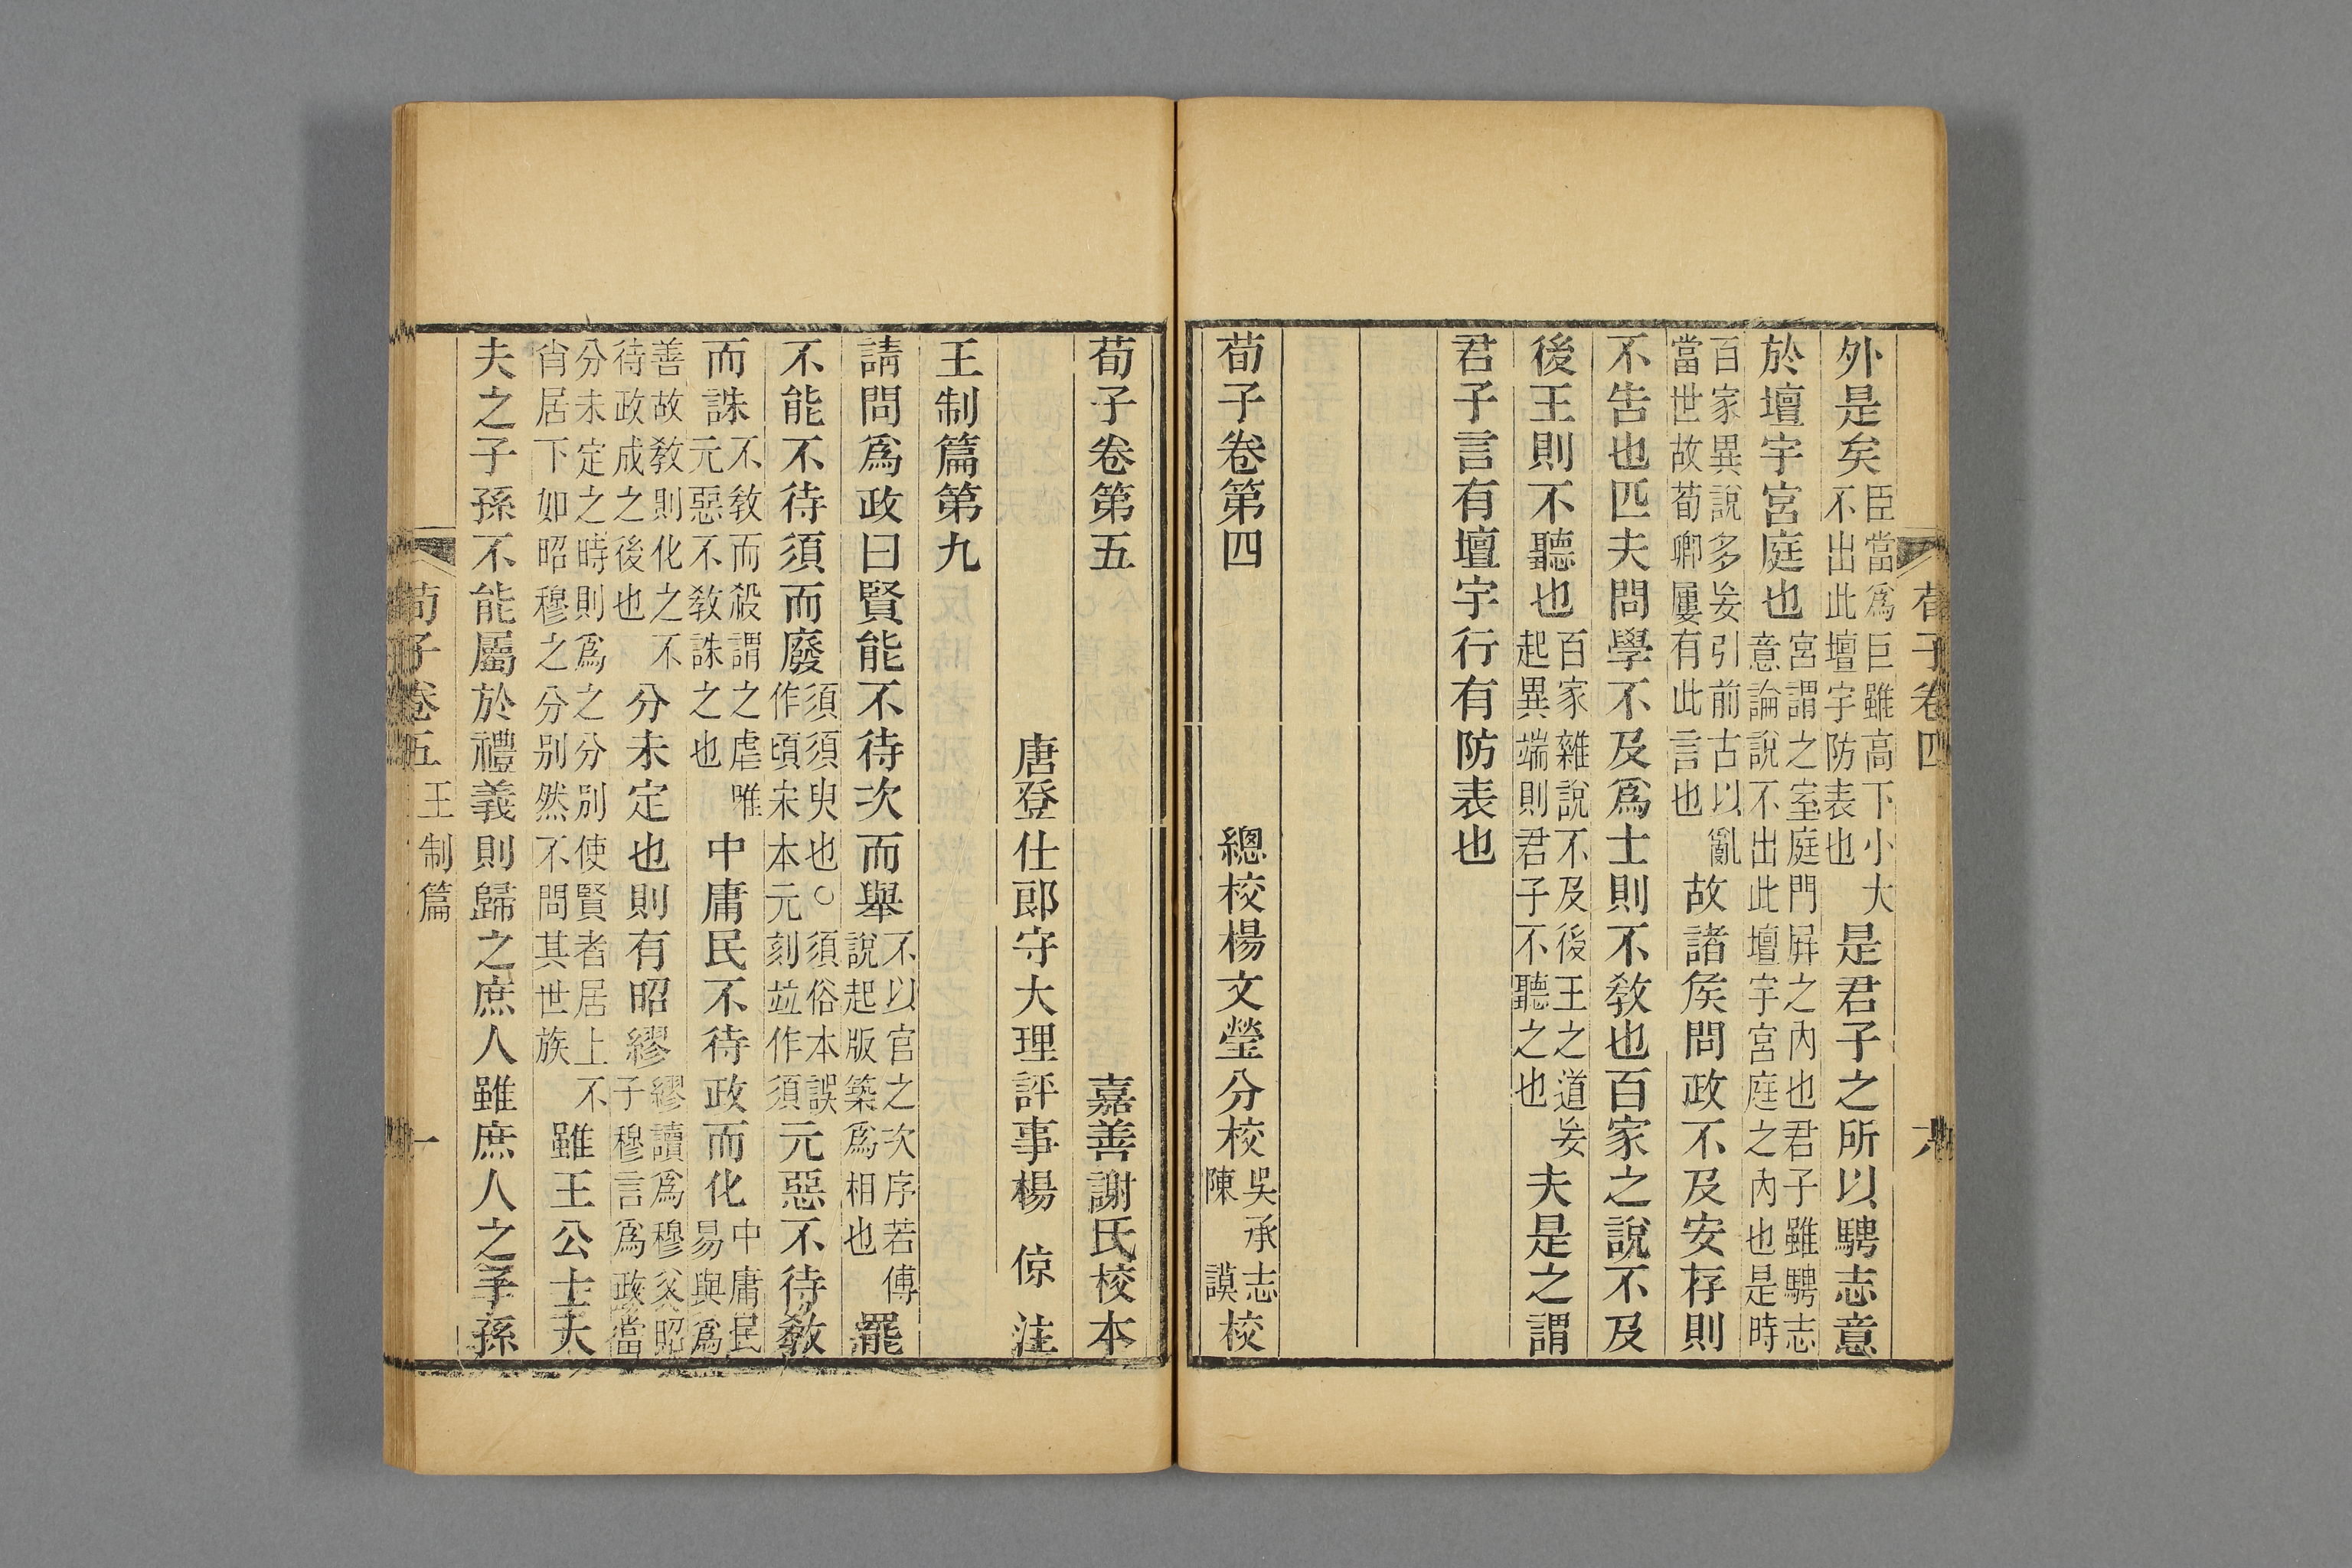 荀子卷四
外是矣臣當爲巨雖高下小大不出此壇宇防表也是君子之所以騁志意
於壇宇宮庭也宮謂之室庭門屛之內也君子雖騁志意論說不出此壇宇宮庭之內也是時
百家異說多妄引前古以亂當世故荀卿屢有此言也故諸矦問政不及安存則
不告也匹夫問學不及爲士則不敎也百家之說不及
後王則不聽也百家雜說不及後王之道妄起異端則君子不聽之也夫是之謂
君子言有壇宇行有防表也
荀子卷第四 總校楊文瑩分校吳承志陳謨校
荀子卷第五 嘉善謝氏校本
唐登仕郎守大理評事楊 倞 注
王制篇第九
請問爲政曰賢能不待次而舉不以官之次序若傅說起版築爲相也罷
不能不待須而廢須須臾也○須俗本誤作頃宋本元刻竝作須元惡不待敎
而誅不敎而殺謂之虐唯元惡不敎誅之也中庸民不待政而化中庸民易與爲
善故敎則化之不待政成之後也分未定也則有昭繆繆讀爲穆父昭子穆言爲政當
分未定之時則爲之分別使賢者居上不肖居下如昭穆之分別然不問其世族雖王公士大
夫之子孫不能屬於禮義則歸之庶人雖庶人之子孫
荀子卷五 王制篇 一